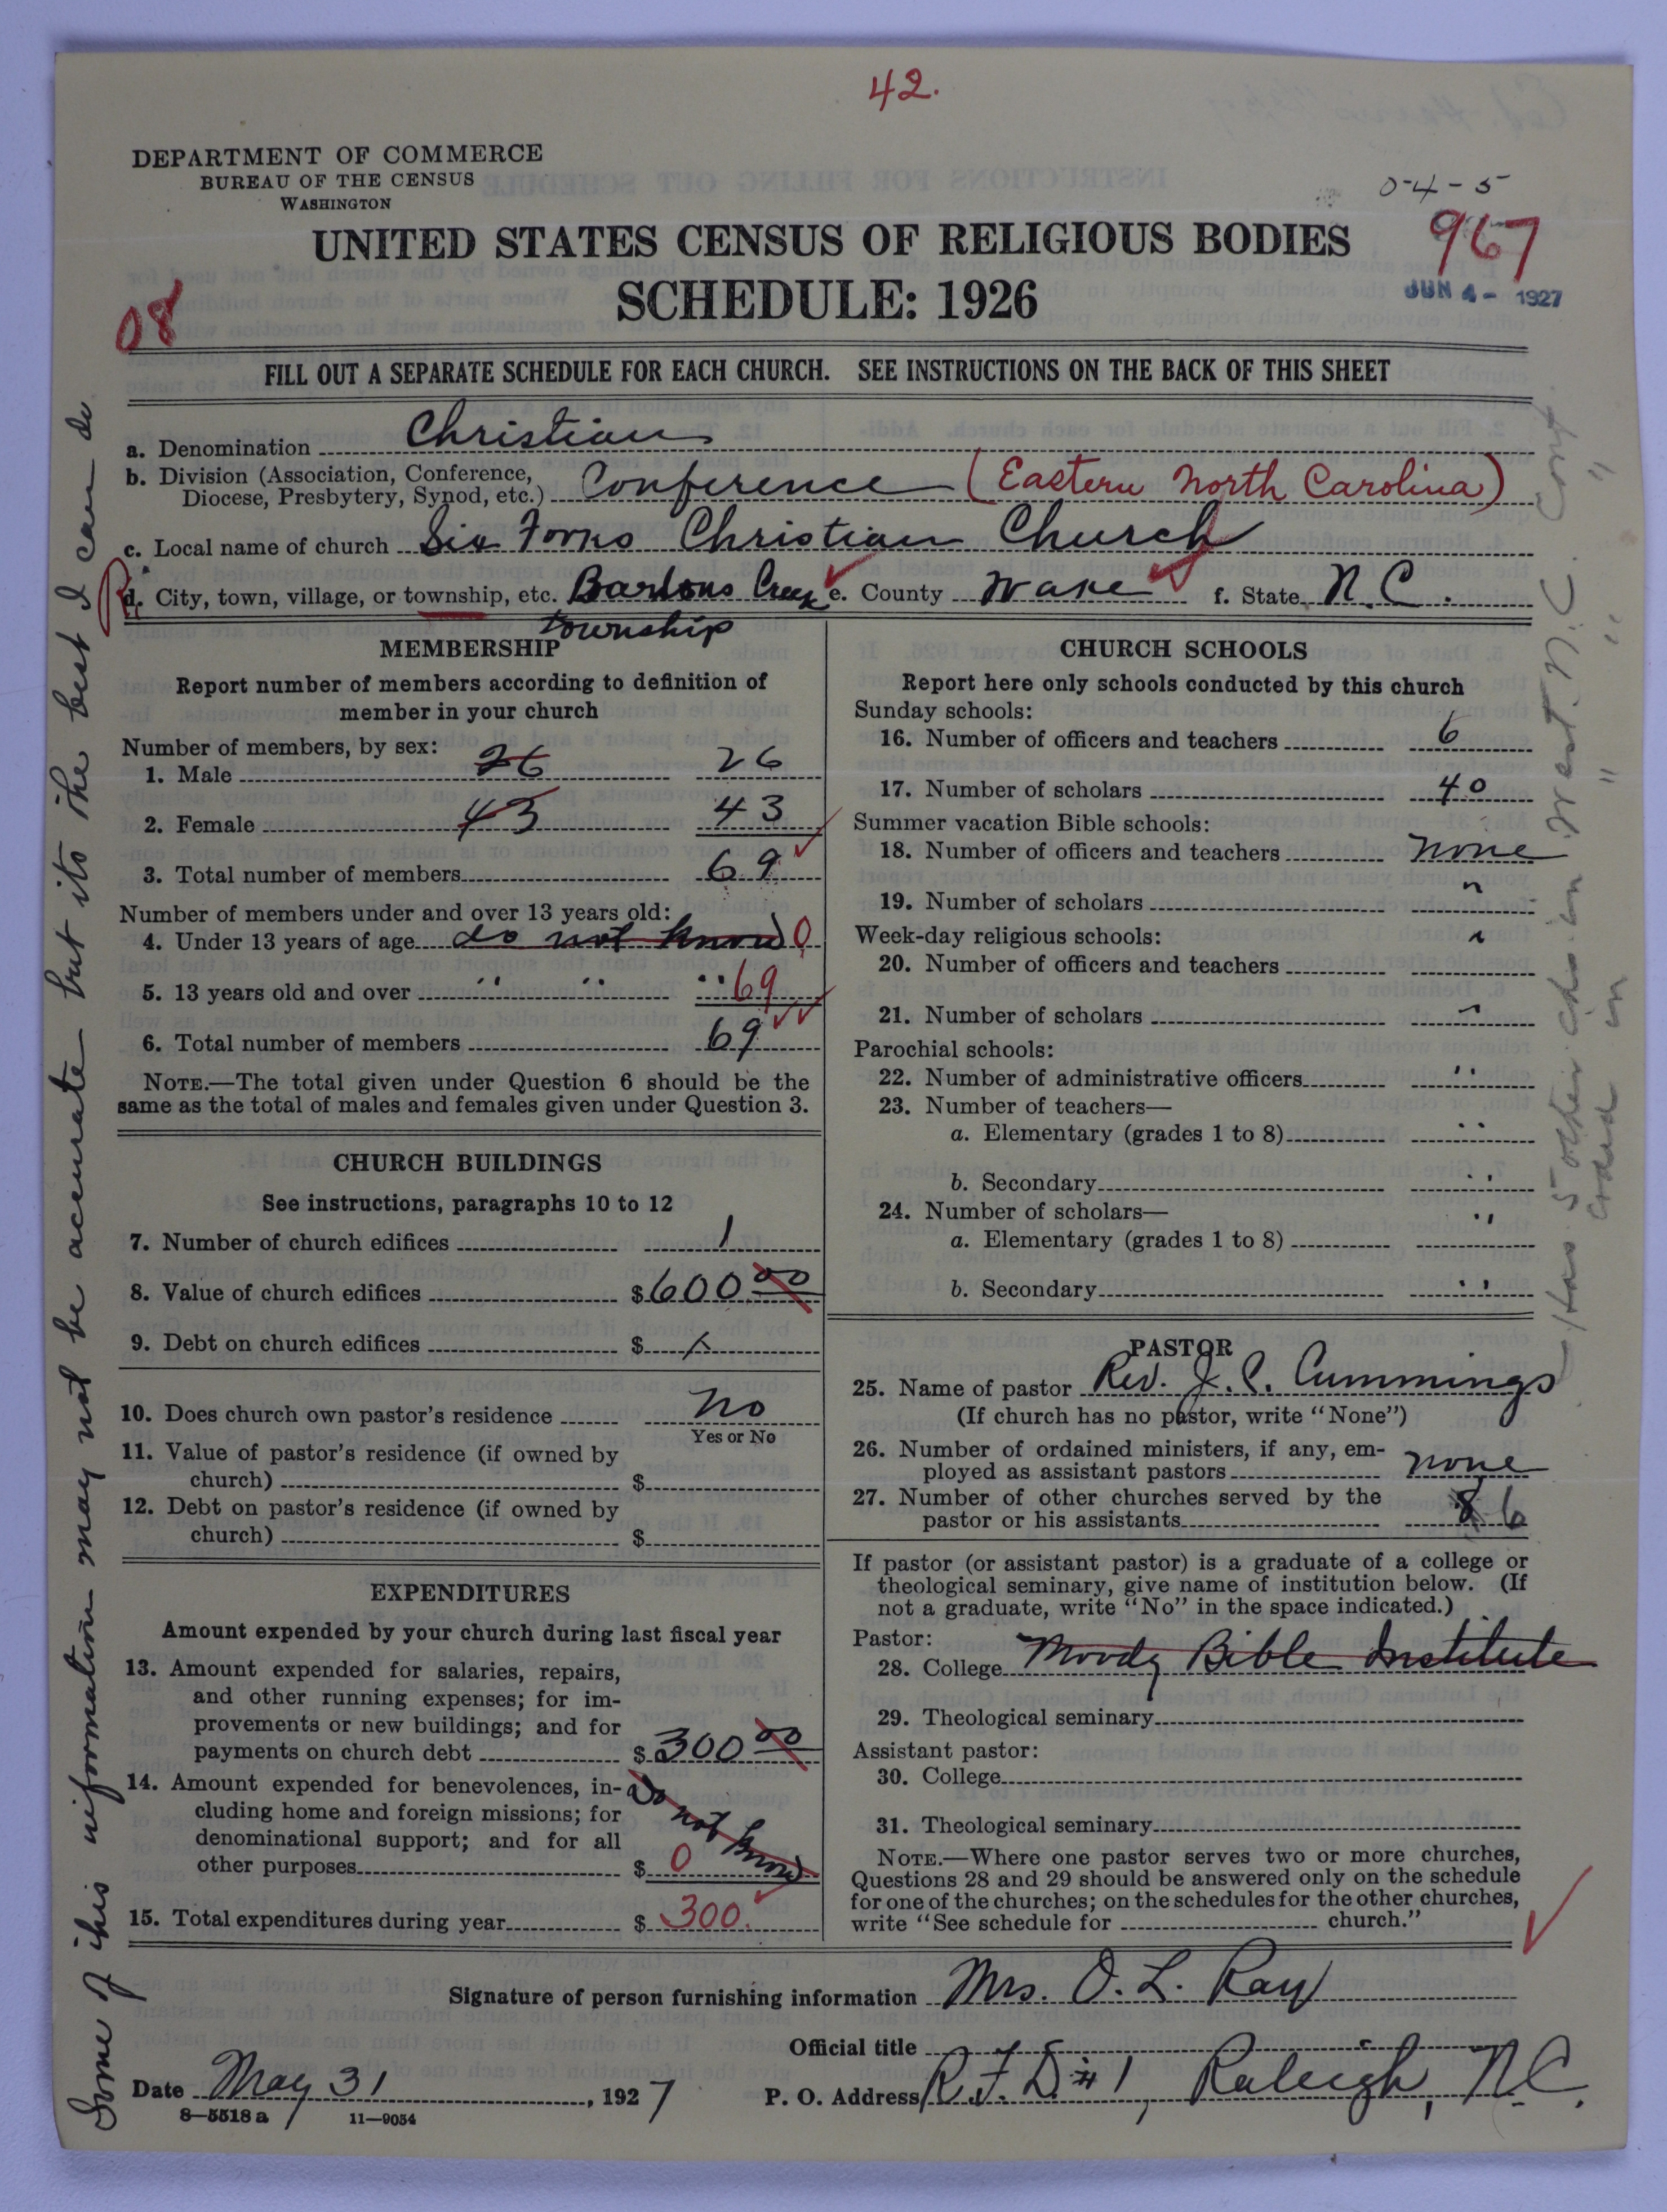 42.
DEPARTMENT OF COMMERCE
BUREAU OF THE CENSUS
WASHINGTON
0-4-5
UNITED STATES CENSUS OF RELIGIOUS BODIES
967
SCHEDULE: 1926
JUN 4 - 1927
08
FILL OUT A SEPARATE SCHEDULE FOR EACH CHURCH. SEE INSTRUCTIONS ON THE BACK OF THIS SHEET
a. Denomination Christian
b. Division (Association, Conference,
Diocese, Presbytery, Synod, etc.) Conference (Eastern North Carolina)
c. Local name of church Six Forks Christian Church
d. City, town, village, or township, etc. Bartons Creek township e. County Wake f. State N.C.
MEMBERSHIP
Report number of members according to definition of
member in your church
Number of members, by sex:
1. Male 26 26
2. Female 43 43
3. Total number of members 69
Number of members under and over 13 years old:
4. Under 13 years of age do not know 0
5. 13 years old and over " " " 69
6. Total number of members 69
NOTE.—The total given under Question 6 should be the
same as the total of males and females given under Question 3.
CHURCH BUILDINGS
See instructions, paragraphs 10 to 12
7. Number of church edifices 1
8. Value of church edifices $600 00
9. Debt on church edifices $ x
10. Does church own pastor's residence No
Yes or No
11. Value of pastor's residence (if owned by
church) $
12. Debt on pastor's residence (if owned by
church) $
EXPENDITURES
Amount expended by your church during last fiscal year
13. Amount expended for salaries, repairs,
and other running expenses; for im-
provements or new buildings; and for
payments on church debt $300 00
14. Amount expended for benevolences, in-
cluding home and foreign missions; for
denominational support; and for all
other purposes $ do not know 0
15. Total expenditures during year $ 300.
CHURCH SCHOOLS
Report here only schools conducted by this church
Sunday schools:
16. Number of officers and teachers 6
17. Number of scholars 40
Summer vacation Bible schools:
18. Number of officers and teachers none
19. Number of scholars "
Week-day religious schools:
20. Number of officers and teachers "
21. Number of scholars "
Parochial schools:
22. Number of administrative officers "
23. Number of teachers—
a. Elementary (grades 1 to 8) "
b. Secondary "
24. Number of scholars—
a. Elementary (grades 1 to 8) "
b. Secondary "
PASTOR
25. Name of pastor Rev. J. C. Cummings
(If church has no pastor, write "None")
26. Number of ordained ministers, if any, em-
ployed as assistant pastors none
27. Number of other churches served by the
pastor or his assistants 8 6
If pastor (or assistant pastor) is a graduate of a college or
theological seminary, give name of institution below. (If
not a graduate, write "No" in the space indicated.)
Pastor:
28. College Moody Bible Institute
29. Theological seminary
Assistant pastor:
30. College
31. Theological seminary
NOTE.—Where one pastor serves two or more churches,
Questions 28 and 29 should be answered only on the schedule
for one of the churches; on the schedules for the other churches,
write "See schedule for church."
Signature of person furnishing information Mrs. O. L. Ray
Official title
Date May 31, 1927
P. O. Address R.F.D. #1, Raleigh, N.C.
8-5518 a 11-9054
Some of this information may not be accurate but its the best I can do
Has 5 other chs in West. N.C. Conf